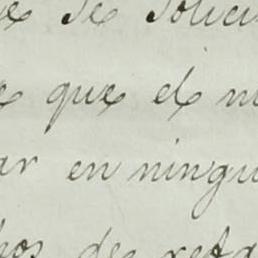 se solici
que el n
ar en ningu
hos de reta